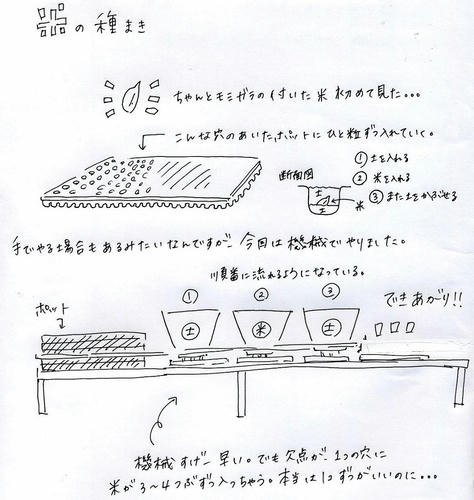 の種まき
ちゃんとモミガラの付いた米初めて見た...
こんな穴のあいたポットにひと粒ずつ入れていく。
断面図
土
土
米
①土を入れる
②米を入れる
③また土をかぶせる
手でやる場合もあるみたいなんですが、今回は機械でやりました。
順番に流れるようになっている。
ポット
① ② ③
土 米 土
できあがり!!
機械すげー早い。でも欠点が、1つの穴に
米が3~4つぶずつ入っちゃう。本当は1こずつがいいのに...